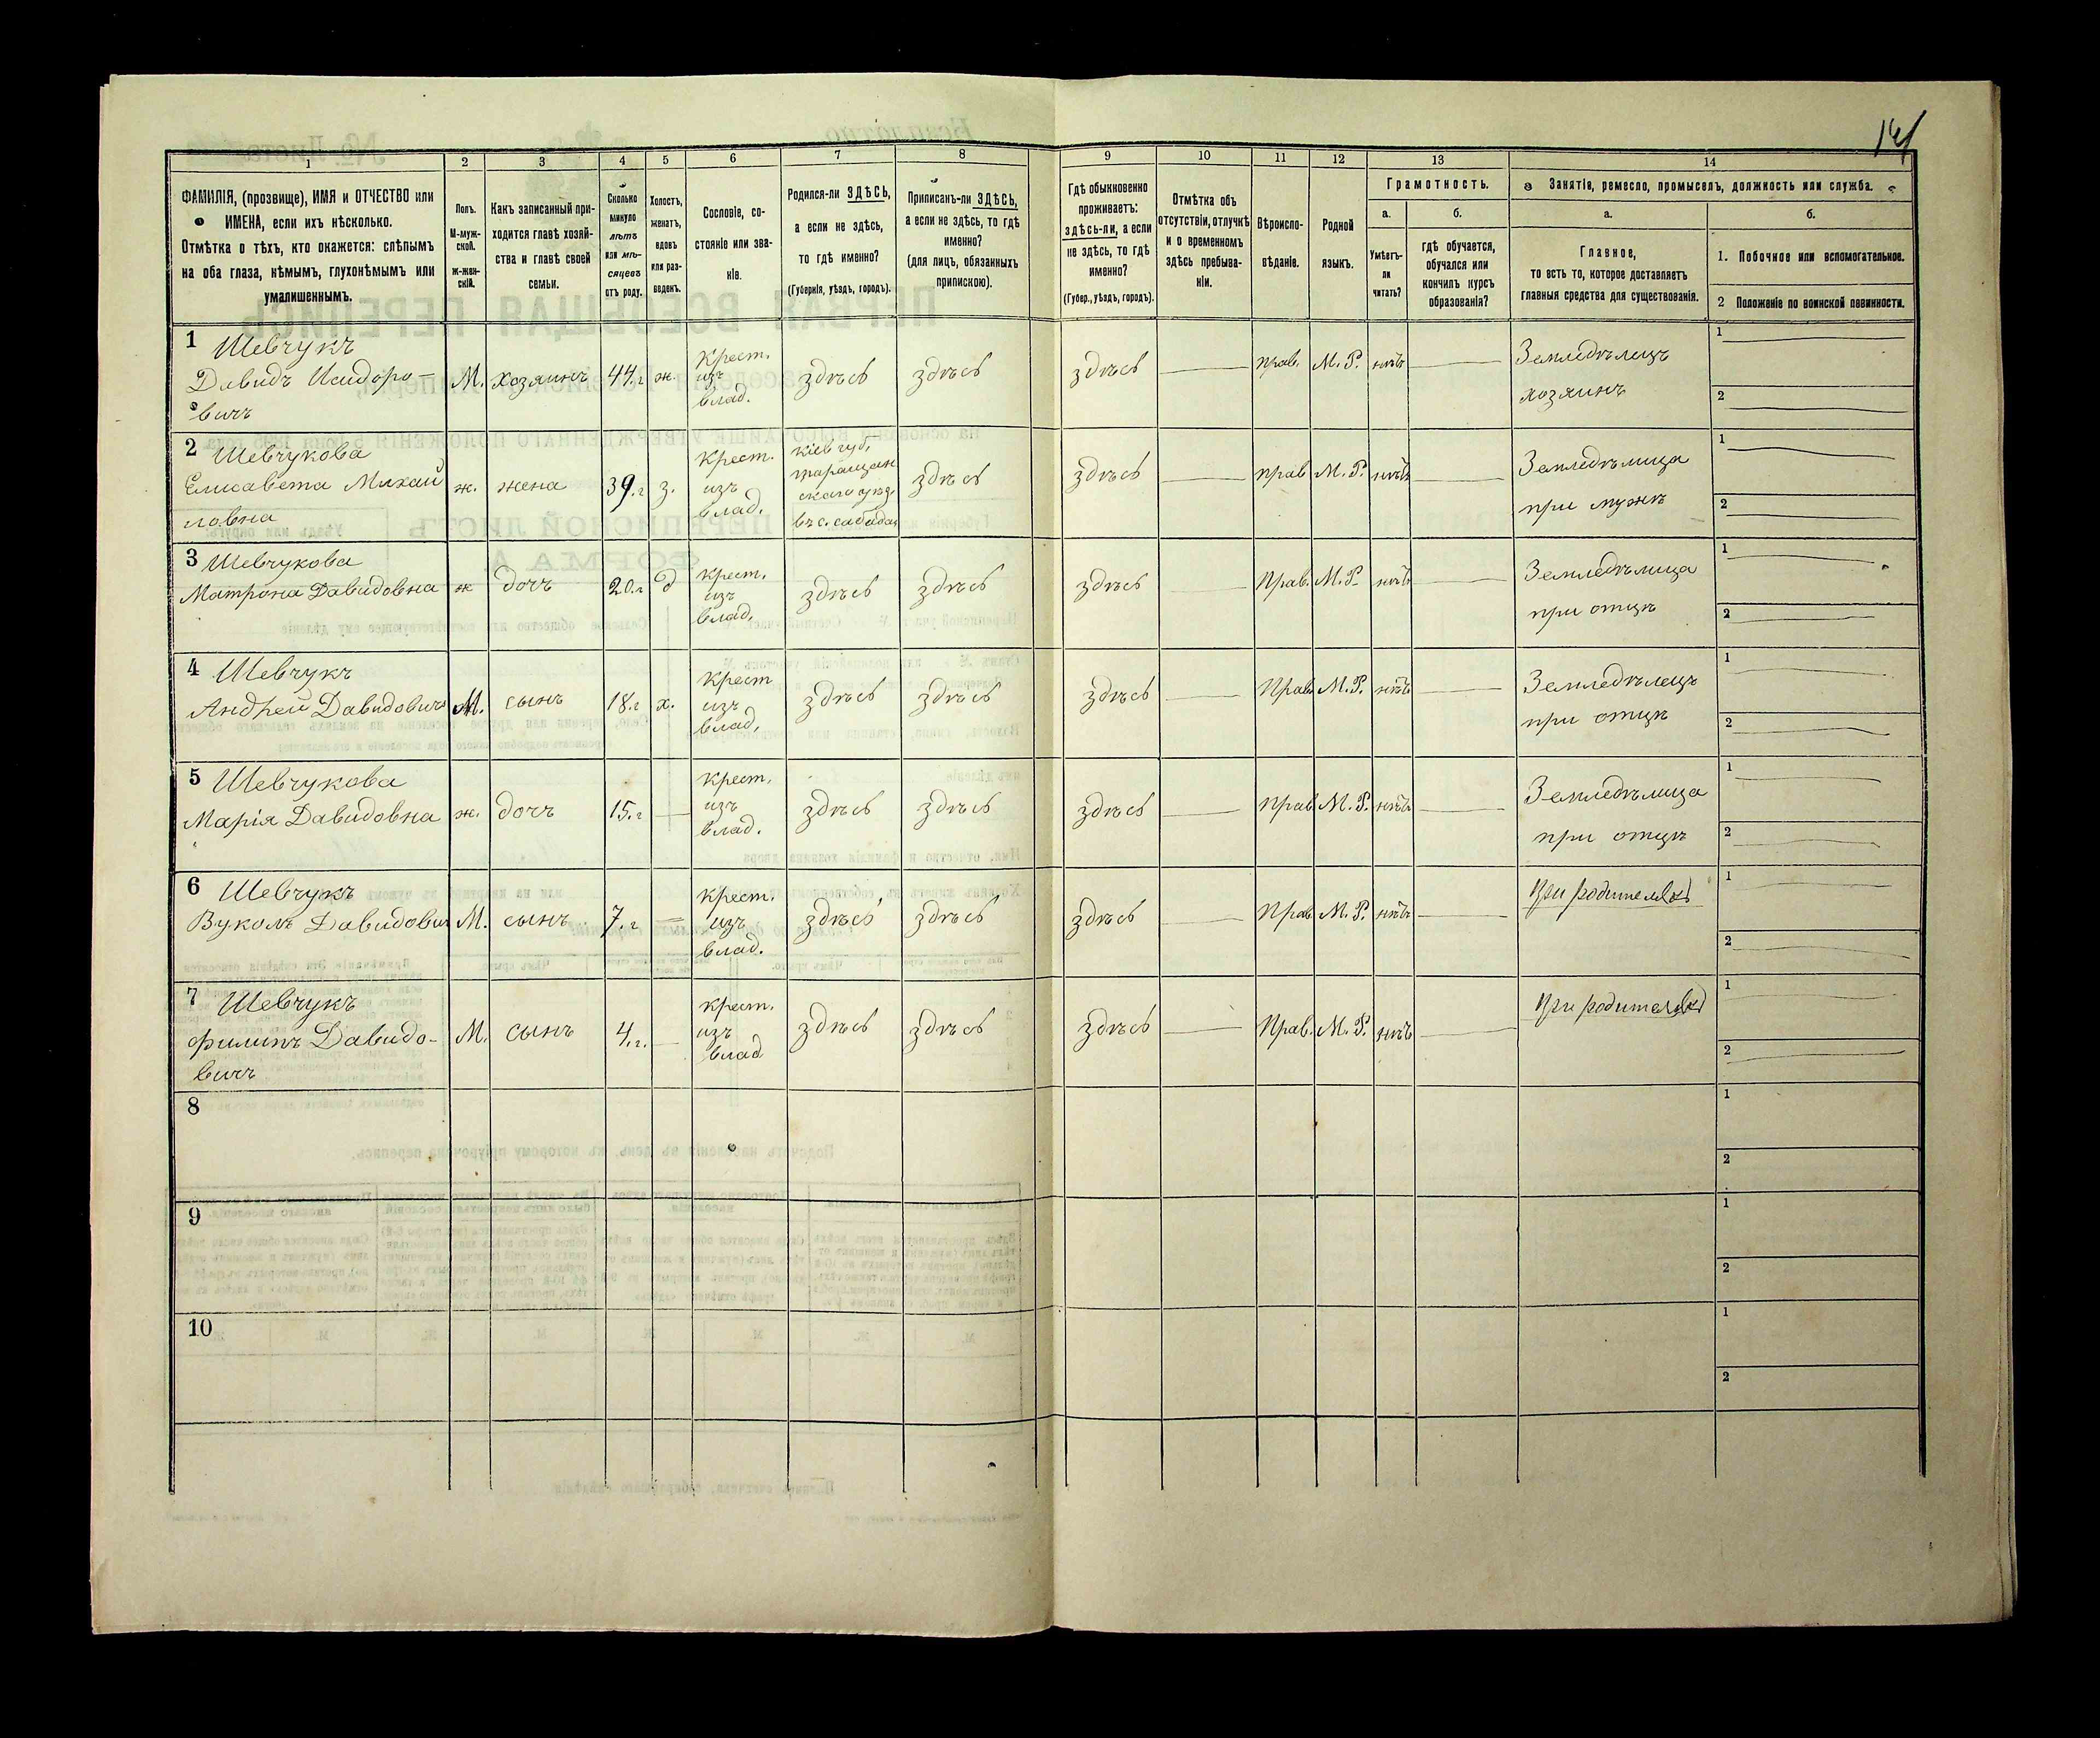 14
1 2 3 4 5 6 7 8 9 10 11 12 13 14
ФАМИЛІЯ, (прозвище), ИМЯ и ОТЧЕСТВО или
ИМЕНА, если ихъ нѣсколько.
Отмѣтка о тѣхъ, кто окажется: слѣпымъ
на оба глаза, нѣмымъ, глухонѣмымъ или
умалишеннымъ.
Полъ.
М-муж-
ской.
Ж-жен-
скій.
Какъ записанный при-
ходится главѣ хозяй-
ства и главѣ своей
семьи.
Сколько
минуло
лѣтъ
или мѣ-
сяцевъ
отъ роду.
Холостъ,
женатъ,
вдовъ
или раз-
веденъ.
Сословіе, со-
стояніе или зва-
ніе.
Родился-ли ЗДѢСЬ,
а если не здѣсь,
то гдѣ именно?
(Губернія, уѣздъ, городъ).
Приписанъ-ли ЗДѢСЬ,
а если не здѣсь, то гдѣ
именно?
(для лицъ, обязанныхъ
припискою).
Гдѣ обыкновенно
проживаетъ:
здѣсь-ли, а если
не здѣсь, то гдѣ
именно?
(Губер., уѣздъ, городъ).
Отмѣтка объ
отсутствіи, отлучкѣ
и о временномъ
здѣсь пребыва-
ніи.
Вѣроиспо-
вѣданіе.
Родной
языкъ.
Грамотность.
а.
Умѣетъ-
ли
читать?
б.
гдѣ обучается,
обучался или
кончилъ курсъ
образованія?
Занятіе, ремесло, промыселъ, должность или служба.
а.
Главное,
то есть то, которое доставляетъ
главныя средства для существованія.
б.
1. Побочное или вспомогательное.
2 Положеніе по воинской повинности.
1 Шевчукъ
Давидъ Исидоро-
вичъ
М.
хозяинъ
44.г
ж.
Крест.
изъ
влад.
здѣсь
здѣсь
здѣсь
прав.
М.Р.
нѣтъ
Земледѣлецъ
хозяинъ
1
2
2 Шевчукова
Елисавета Михай
ловна
ж.
жена
39.г
з.
Крест.
изъ
влад.
Кіев губ,
таращан
скаго уѣзд.
въ с.
здѣсь
здѣсь
прав
М.Р.
нѣтъ
Земледѣлица
при мужѣ
1
2
3 Шевчукова
Матрона Давидовна
ж
дочь
20.г
д
крест.
изъ
влад,
здѣсь
здѣсь
здѣсь
Прав.
М.Р.
нѣтъ
Земледѣлица
при отцѣ
1
2
4 Шевчукъ
Андрей Давидовичъ
М.
сынъ
18.г
х.
Крест
изъ
влад,
здѣсь
здѣсь
здѣсь
Прав.
М.Р.
нѣтъ
Земледѣлецъ
при отцѣ
1
2
5 Шевчукова
Марія Давидовна
ж.
дочь
15.г
Крест.
изъ
влад.
здѣсь
здѣсь
здѣсь
прав
М.Р.
нѣтъ
Земледѣлица
при отцѣ
1
2
6 Шевчукъ
Вуколъ Давидович
М.
сынъ
7.г
крест.
изъ
влад.
здѣсь
здѣсь
здѣсь
Прав
М.Р.
нѣтъ
При родителяхъ
1
2
7 Шевчукъ
Филипъ Давидо-
вичъ
М.
сынъ
4.г.
крест.
изъ
влад
здѣсь
здѣсь
здѣсь
Прав.
М.Р.
нѣтъ
При родителяхъ
1
2
8
1
2
9
1
2
10
1
2